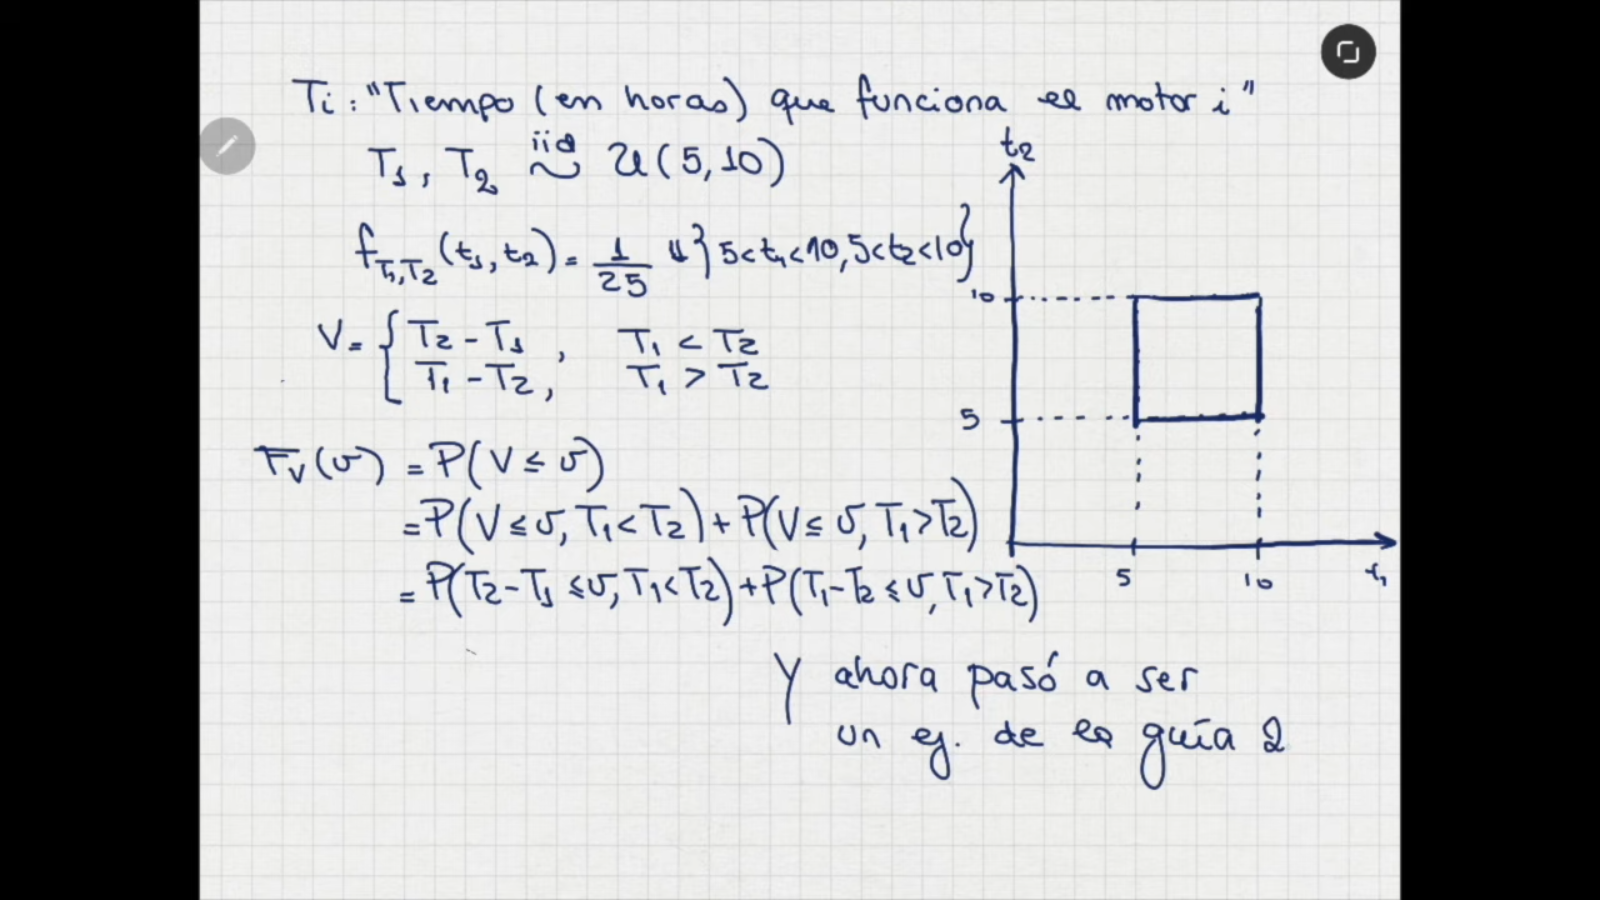 Ti: "Tiempo (en horas) que funciona el motor i"
T₁, T₂ iid ~ U(5,10)
f_{T₁,T₂}(t₁,t₂) = 1/25 𝟙{5<t₁<10, 5<t₂<10}
V = { T₂ - T₁ , T₁ < T₂
T₁ - T₂, T₁ > T₂
F_V(v) = P(V ≤ v)
= P(V ≤ v, T₁ < T₂) + P(V ≤ v, T₁ > T₂)
= P(T₂ - T₁ ≤ v, T₁ < T₂) + P(T₁ - T₂ ≤ v, T₁ > T₂)
t₂
10
5
5 10 t₁
Y ahora pasó a ser
un ej. de la guía 2